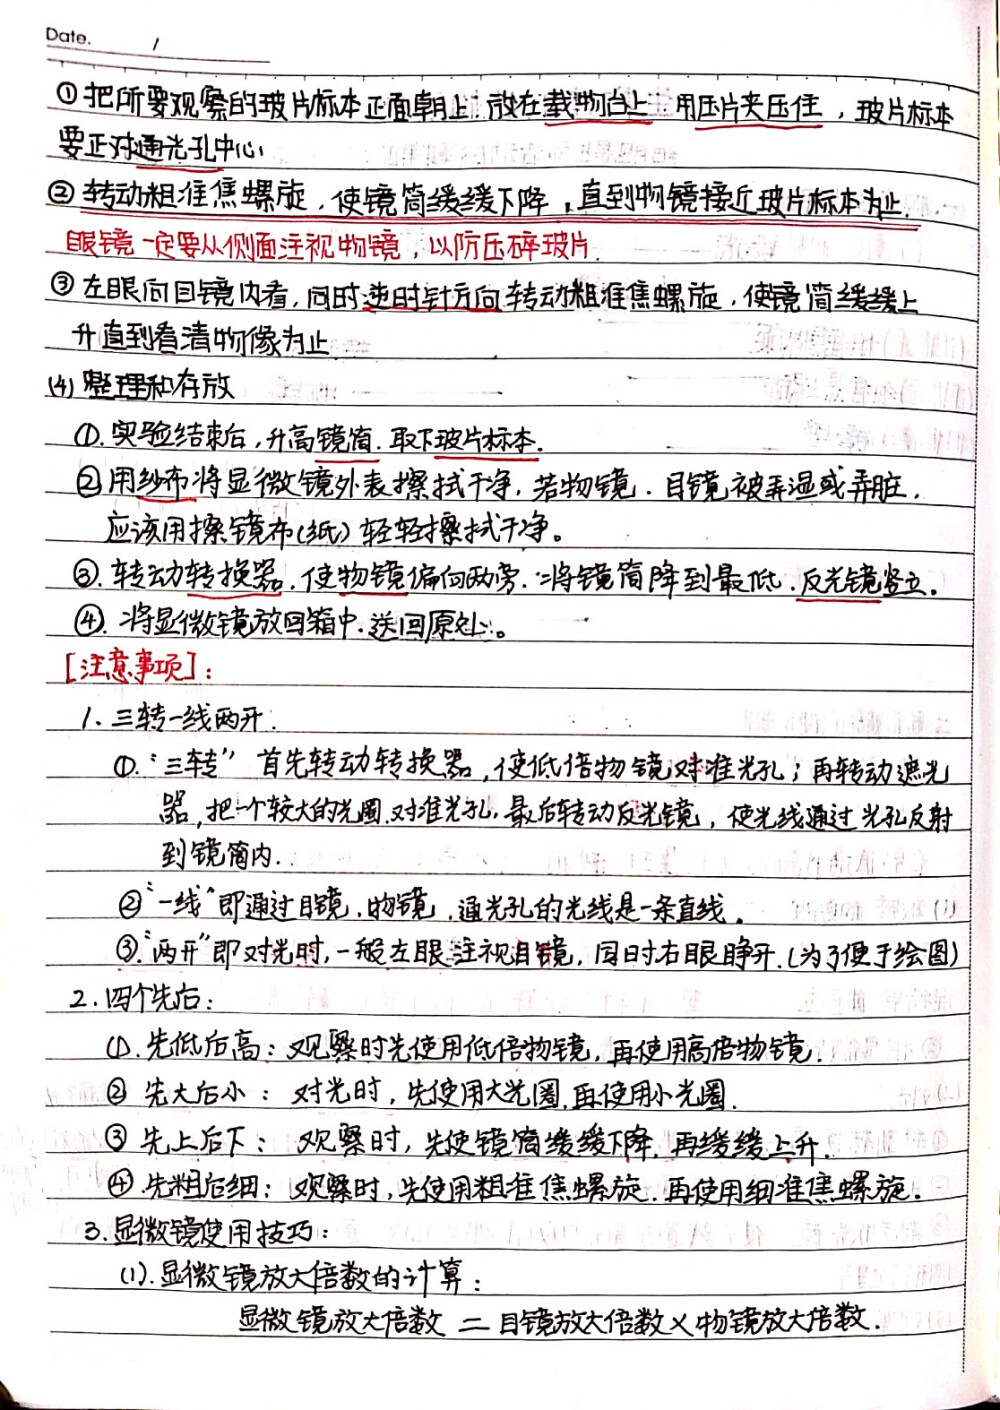 Date. /
①把所要观察的玻片标本正面朝上,放在载物台上,用压片夹压住,玻片标本
要正对通光孔中心
②转动粗准焦螺旋,使镜筒缓缓下降,直到物镜接近玻片标本为止.
眼镜一定要从侧面注视物镜,以防压碎玻片.
③左眼向目镜内看,同时逆时针方向转动粗准焦螺旋,使镜筒缓缓上
升直到看清物像为止
(4)整理和存放
①.实验结束后,升高镜筒.取下玻片标本.
②用纱布将显微镜外表擦拭干净,若物镜.目镜被弄湿或弄脏,
应该用擦镜布(纸)轻轻擦拭干净。
③.转动转换器.使物镜偏向两旁.将镜筒降到最低.反光镜竖立。
④.将显微镜放回箱中.送回原处。
[注意事项]:
1.三转一线两开.
①."三转" 首先转动转换器,使低倍物镜对准光孔;再转动遮光
器,把一个较大的光圈对准光孔.最后转动反光镜,使光线通过光孔反射
到镜筒内.
②"一线"即通过目镜.物镜,通光孔的光线是一条直线.
③."两开"即对光时,一般左眼注视目镜,同时右眼睁开.(为了便于绘图)
2.四个先后:
①.先低后高:观察时先使用低倍物镜,再使用高倍物镜.
② 先大后小: 对光时,先使用大光圈.再使用小光圈.
③ 先上后下: 观察时,先使镜筒缓缓下降.再缓缓上升.
④.先粗后细: 观察时,先使用粗准焦螺旋.再使用细准焦螺旋.
3.显微镜使用技巧:
(1).显微镜放大倍数的计算:
显微镜放大倍数 = 目镜放大倍数×物镜放大倍数.